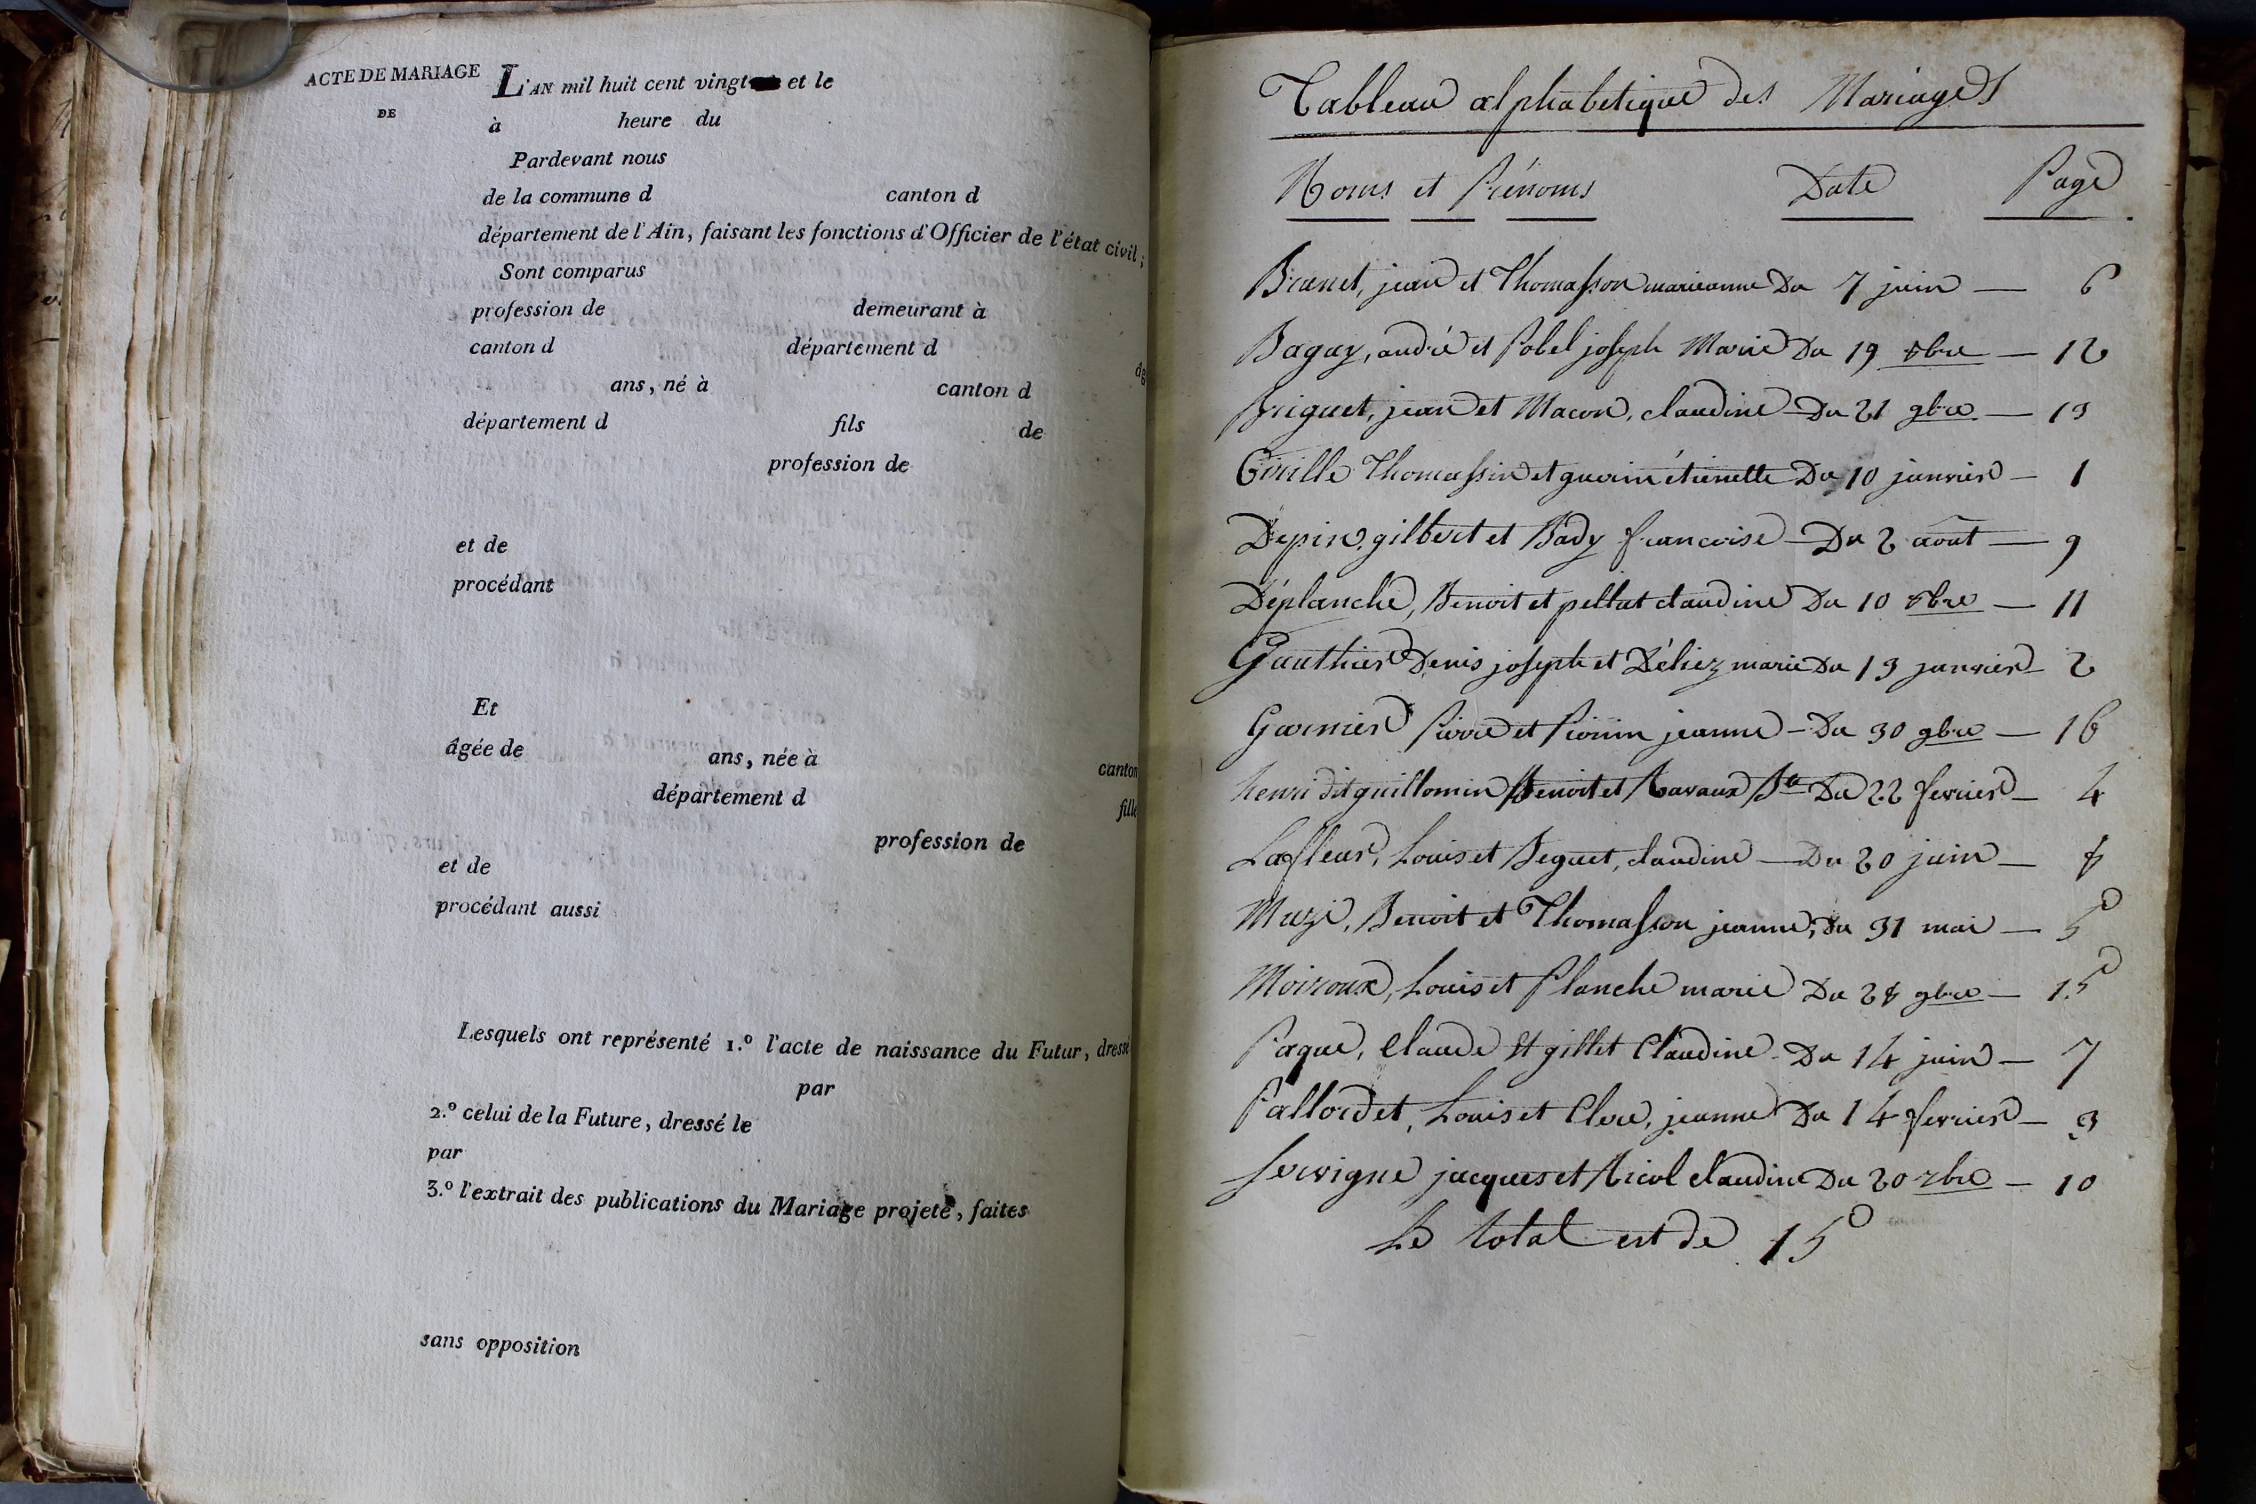 ACTE DE MARIAGE
DE
L'AN mil huit cent vingt et le
à heure du
Pardevant nous
de la commune d canton d
département de l'Ain, faisant les fonctions d'Officier de l'état civil;
Sont comparus
profession de demeurant à
canton d département d
ans, né à canton d
département d fils de
profession de
et de
procédant
Et
âgée de ans, née à canton
département d fille
profession de
et de
procédant aussi
Lesquels ont représenté 1.º l'acte de naissance du Futur, dressé
par
2.º celui de la Future, dressé le
par
3.º l'extrait des publications du Mariage projeté, faites
sans opposition
Tableau alphabetique des Mariages
Noms et Prénoms Date Page
Brunet, jean et Thomasson marieanne Du 7 juin — 6
Baguy, andré et Pobel joseph Marie Du 19 8bre — 12
Briguet, jean et Macon, claudine Du 21 9bre — 13
Civille Thomassin et guerin étienette Du 10 janvier — 1
Depin, gilbert et Bady francoise — Du 2 août — 9
Déplanche, Benoit et pellat claudine Du 10 8bre — 11
Gauthier Denis joseph et Déliez marie Du 13 janvier — 2
Garnier Pierre et Perrin jeanne — Du 30 9bre — 16
henri dit guillomin Benoit et Ravaux Bte Du 22 fevrier — 4
Lafleur, Louis et Beguet, claudine — Du 20 juin — 8
Muzi, Benoit et Thomasson jeanne, du 31 mai — 5
Moiroux, Louis et Planche marie Du 28 9bre — 15
Paque, Claude Et gillet Claudine Du 14 juin — 7
Pallordet, Louis et Clere, jeanne Du 14 fevrier — 3
Servigne jacques et Nicol claudine Du 20 7bre — 10
Le total est de 15